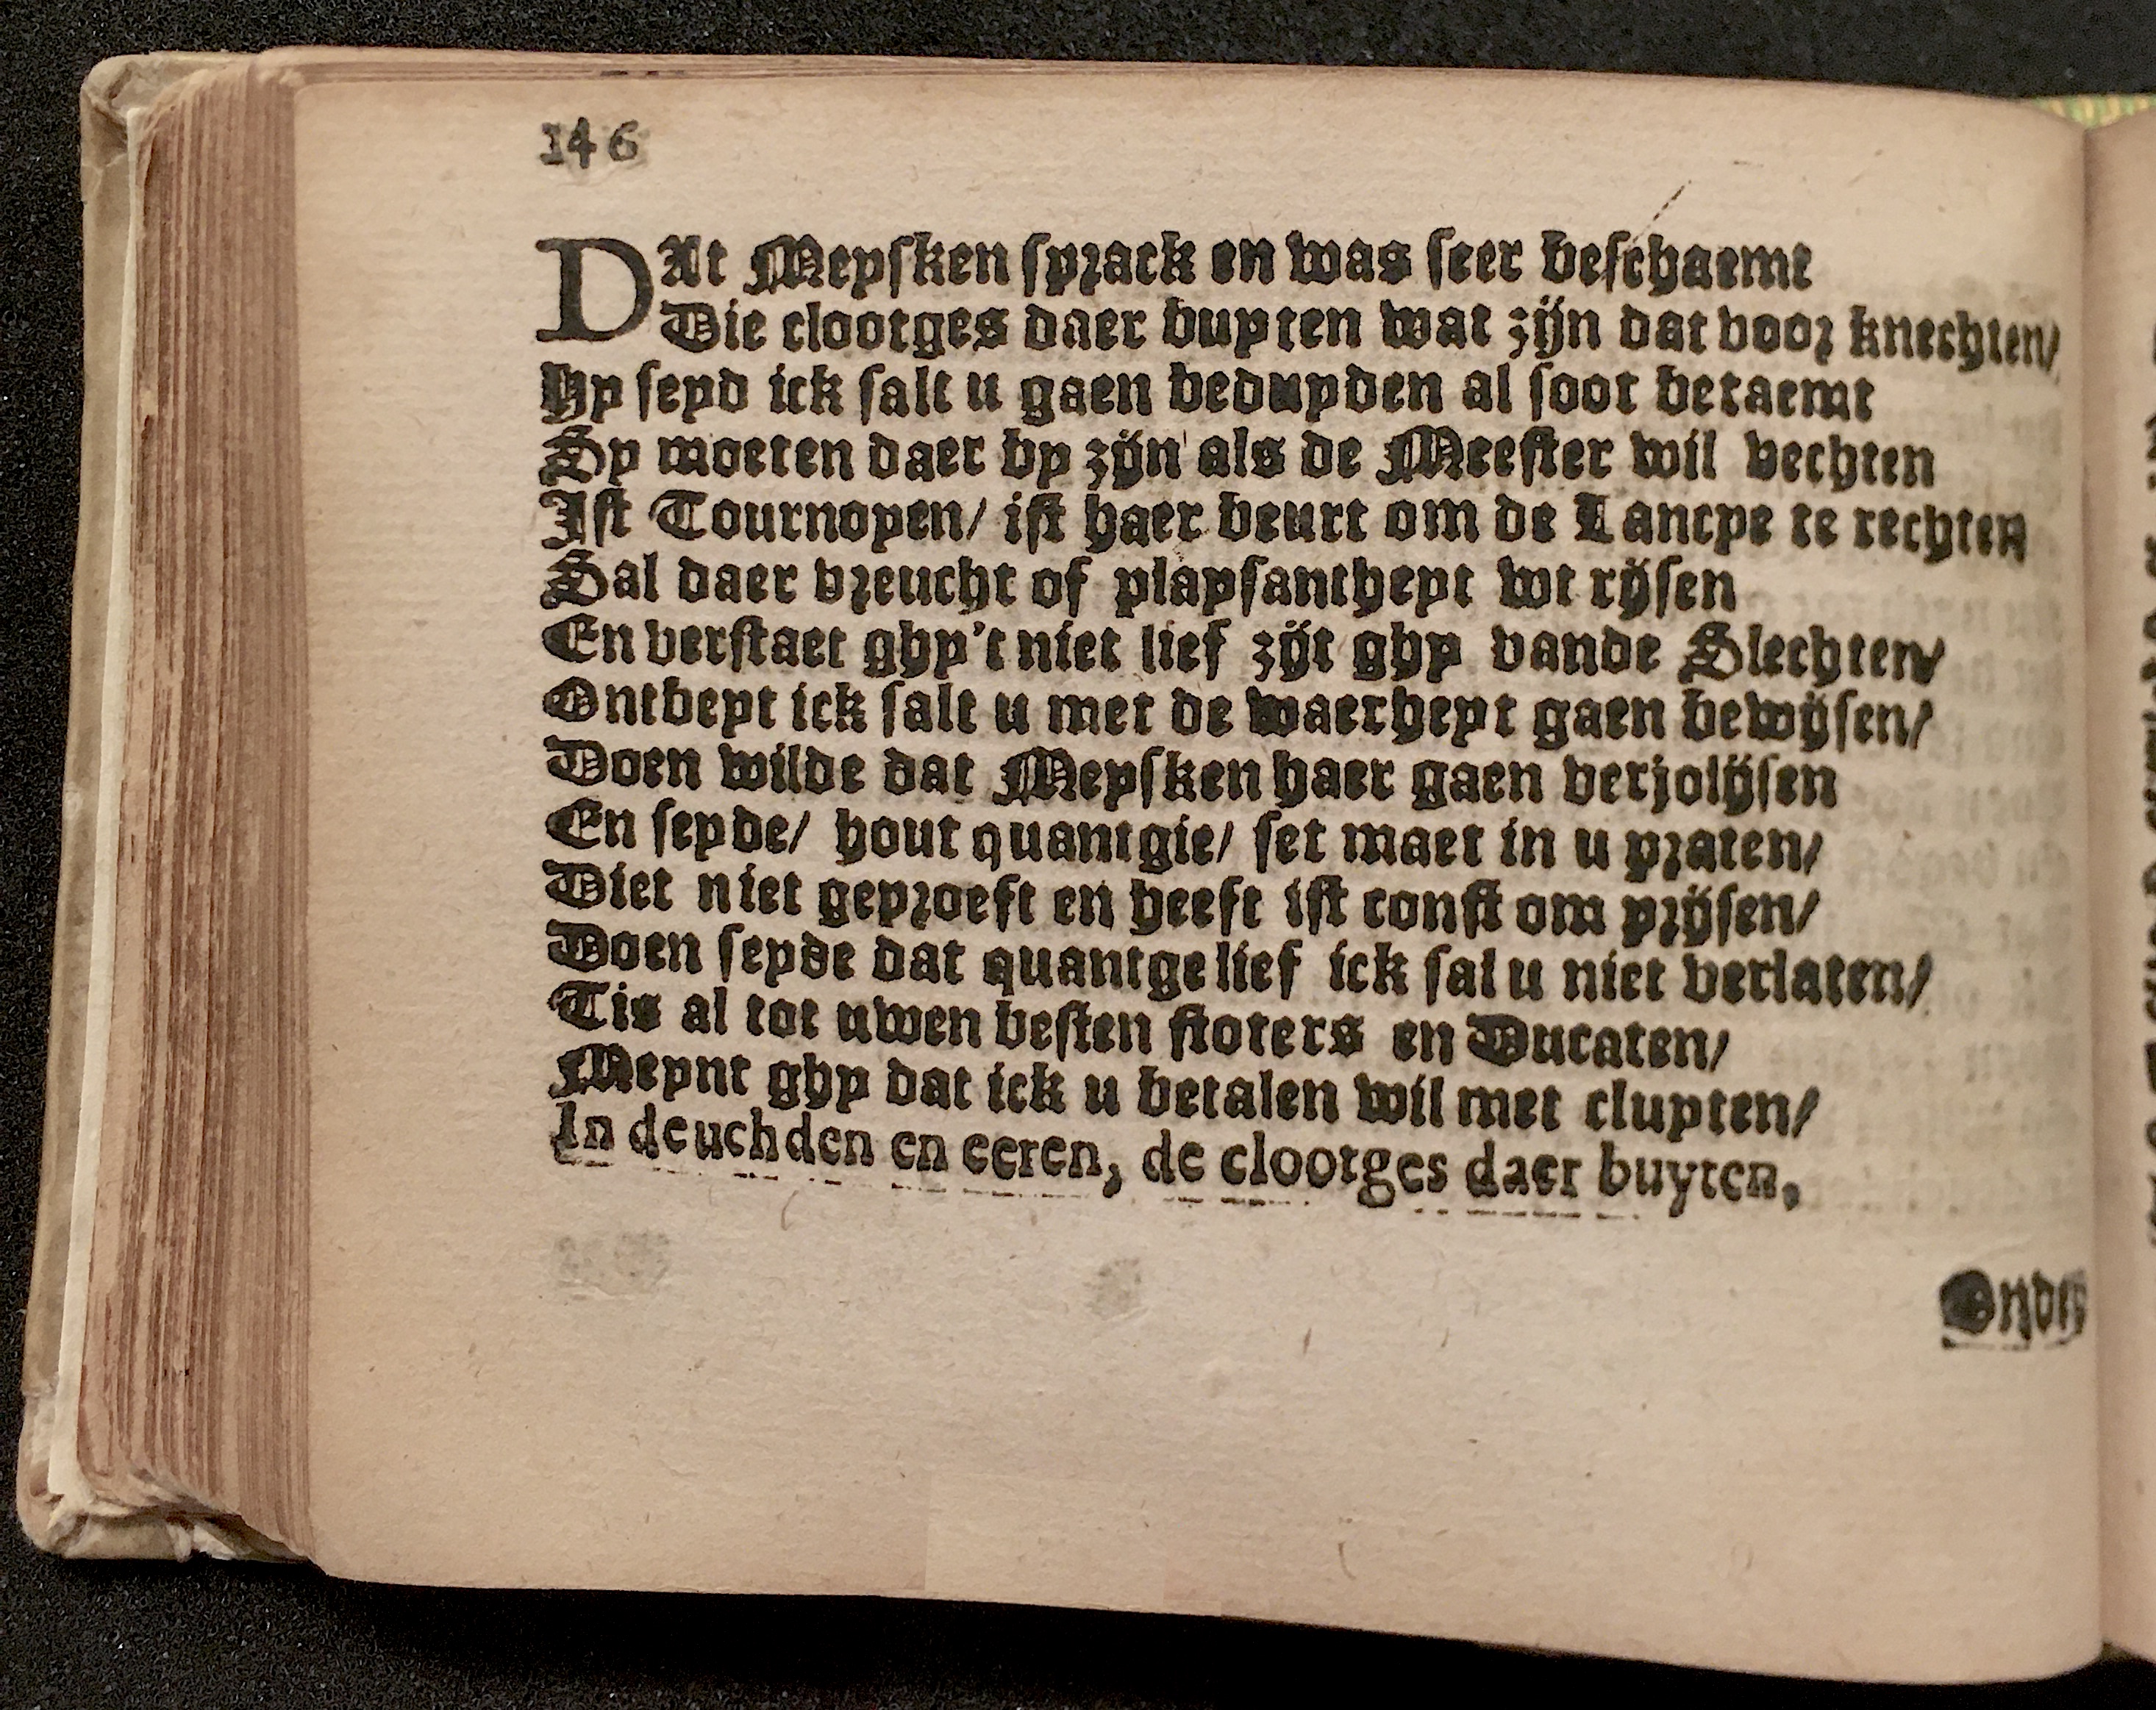 146
DAt Meysken sprack en was seer beschaemt
Die clootges daer buyten wat zijn dat voor knechten/
Hy seyd ick salt u gaen beduyden al soot betaemt
Sy moeten daer by zijn als de Meester wil vechten
Ist Tournoyen/ ist haer beurt om de Lancye te rechten
Sal daer vreucht of playsantheyt wt rijsen
En verstaet ghy't niet lief zijt ghy vande Slechten/
Ontbeyt ick salt u met de waerheyt gaen bewijsen/
Doen wilde dat Meysken haer gaen verjolijsen
En seyde/ hout quantgie/ set maer in u praten/
Diet niet geproeft en heeft ist const om prijsen/
Doen seyde dat quantge lief ick sal u niet verlaten/
Tis al tot uwen besten stoters en Ducaten/
Meynt ghy dat ick u betalen wil met cluyten/
In deuchden en eeren, de clootges daer buyten.